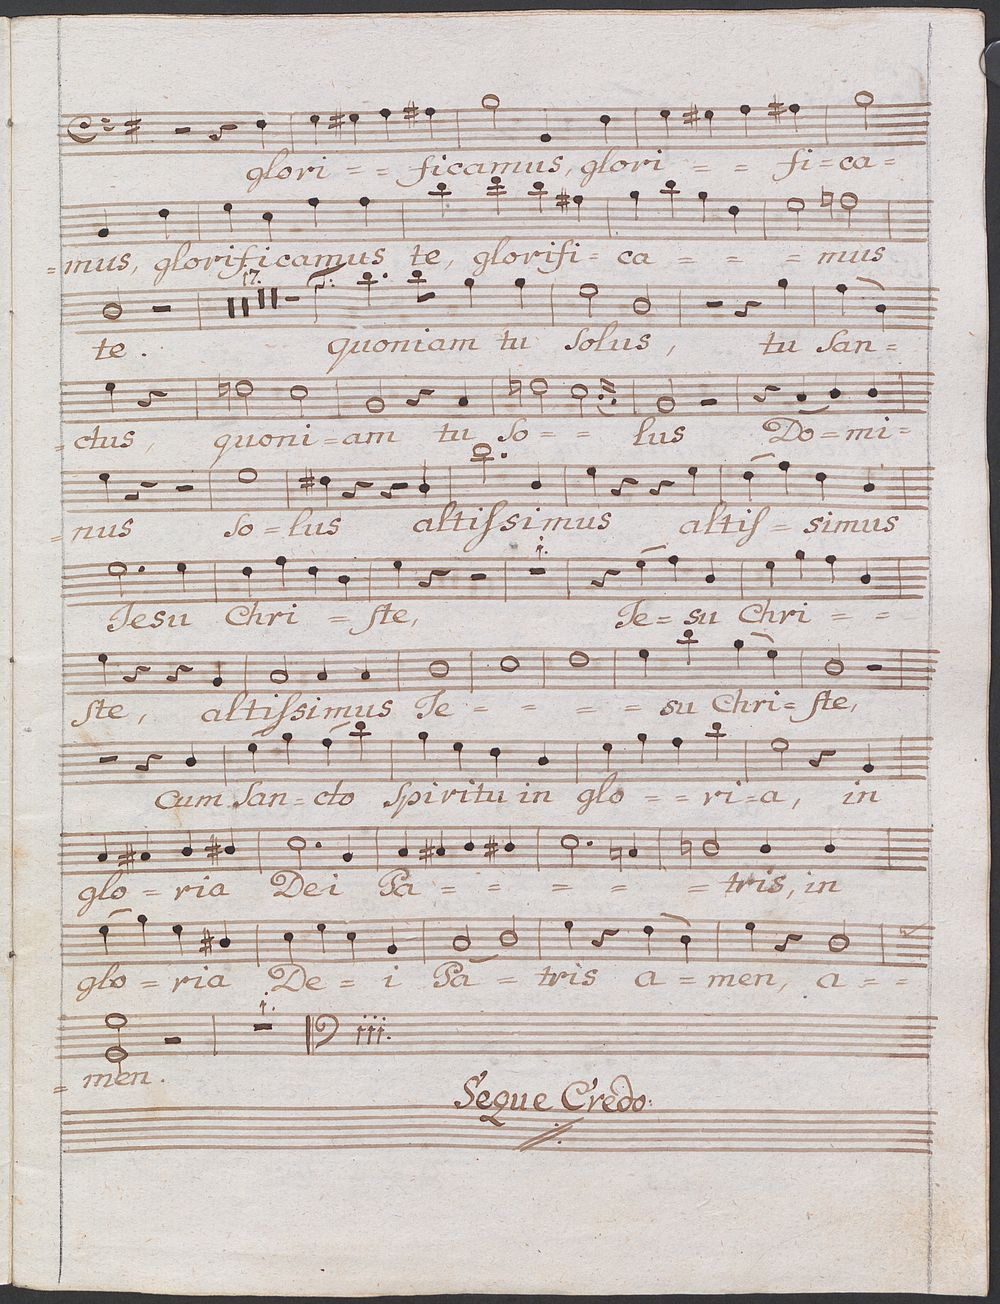 glori = = ficamus, glori = = fi=ca=
=mus, glorificamus te, glorifi= ca = = = mus
17.
te. quoniam tu solus, tu san=
=ctus, quoni=am tu so= = lus Do=mi=
=nus so=lus altiſsimus altiſ= simus
1.
Jesu Chri = ste, Je= su Chri = =
ste, altiſsimus Je = = = = su Chri= ste,
cum san=cto spiritu in glo = = ri=a, in
glo = ria Dei Pa = = = = = tris, in
glo = ria De = i Pa = tris a = men, a = =
1. iii.
= men.
Segue Credo: